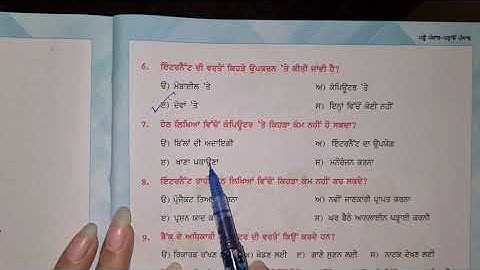 ਪੜ੍ਹੋ ਪੰਜਾਬ-ਪੜ੍ਹਾਓ ਪੰਜਾਬ
6. ਇੰਟਰਨੈੱਟ ਦੀ ਵਰਤੋਂ ਕਿਹੜੇ ਉਪਕਰਨ 'ਤੇ ਕੀਤੀ ਜਾਂਦੀ ਹੈ?
ੳ) ਮੋਬਾਈਲ 'ਤੇ ਅ) ਕੰਪਿਊਟਰ 'ਤੇ
ੲ) ਦੋਵਾਂ 'ਤੇ ਸ) ਇਨ੍ਹਾਂ ਵਿੱਚੋਂ ਕੋਈ ਨਹੀਂ
7. ਹੇਠ ਲਿਖਿਆਂ ਵਿੱਚੋਂ ਕੰਪਿਊਟਰ 'ਤੇ ਕਿਹੜਾ ਕੰਮ ਨਹੀਂ ਹੋ ਸਕਦਾ?
ੳ) ਬਿੱਲਾਂ ਦੀ ਅਦਾਇਗੀ ਅ) ਇੰਟਰਨੈੱਟ ਦਾ ਉਪਯੋਗ
ੲ) ਖਾਣਾ ਪਕਾਉਣਾ ਸ) ਮਨੋਰੰਜਨ ਕਰਨਾ
8. ਇੰਟਰਨੈੱਟ ਰਾਹੀਂ ਲਿਖਿਆਂ ਵਿੱਚੋਂ ਕਿਹੜਾ ਕੰਮ ਨਹੀਂ ਕਰ ਸਕਦੇ?
ੳ) ਪ੍ਰੋਜੈਕਟ ਤਿਆਰ ਕਰਨਾ ਅ) ਨਵੀਂ ਜਾਣਕਾਰੀ ਪ੍ਰਾਪਤ ਕਰਨਾ
ੲ) ਪ੍ਰਸ਼ਨ ਯਾਦ ਸ) ਘਰ ਬੈਠੇ ਆਨਲਾਈਨ ਪੜ੍ਹਾਈ ਕਰਨੀ
9. ਬੈਂਕ ਦੇ ਅਧਿਕਾਰੀ ਦੀ ਵਰਤੋਂ ਕਿਉਂ ਕਰਦੇ ਹਨ?
ੳ) ਰਿਕਾਰਡ ਰੱਖਣ ਅ) ਖੇਡਣ ਲਈ ੲ) ਗਾਣੇ ਸੁਣਨ ਲਈ ਸ) ਨਾਟਕ ਦੇਖਣ ਲਈ